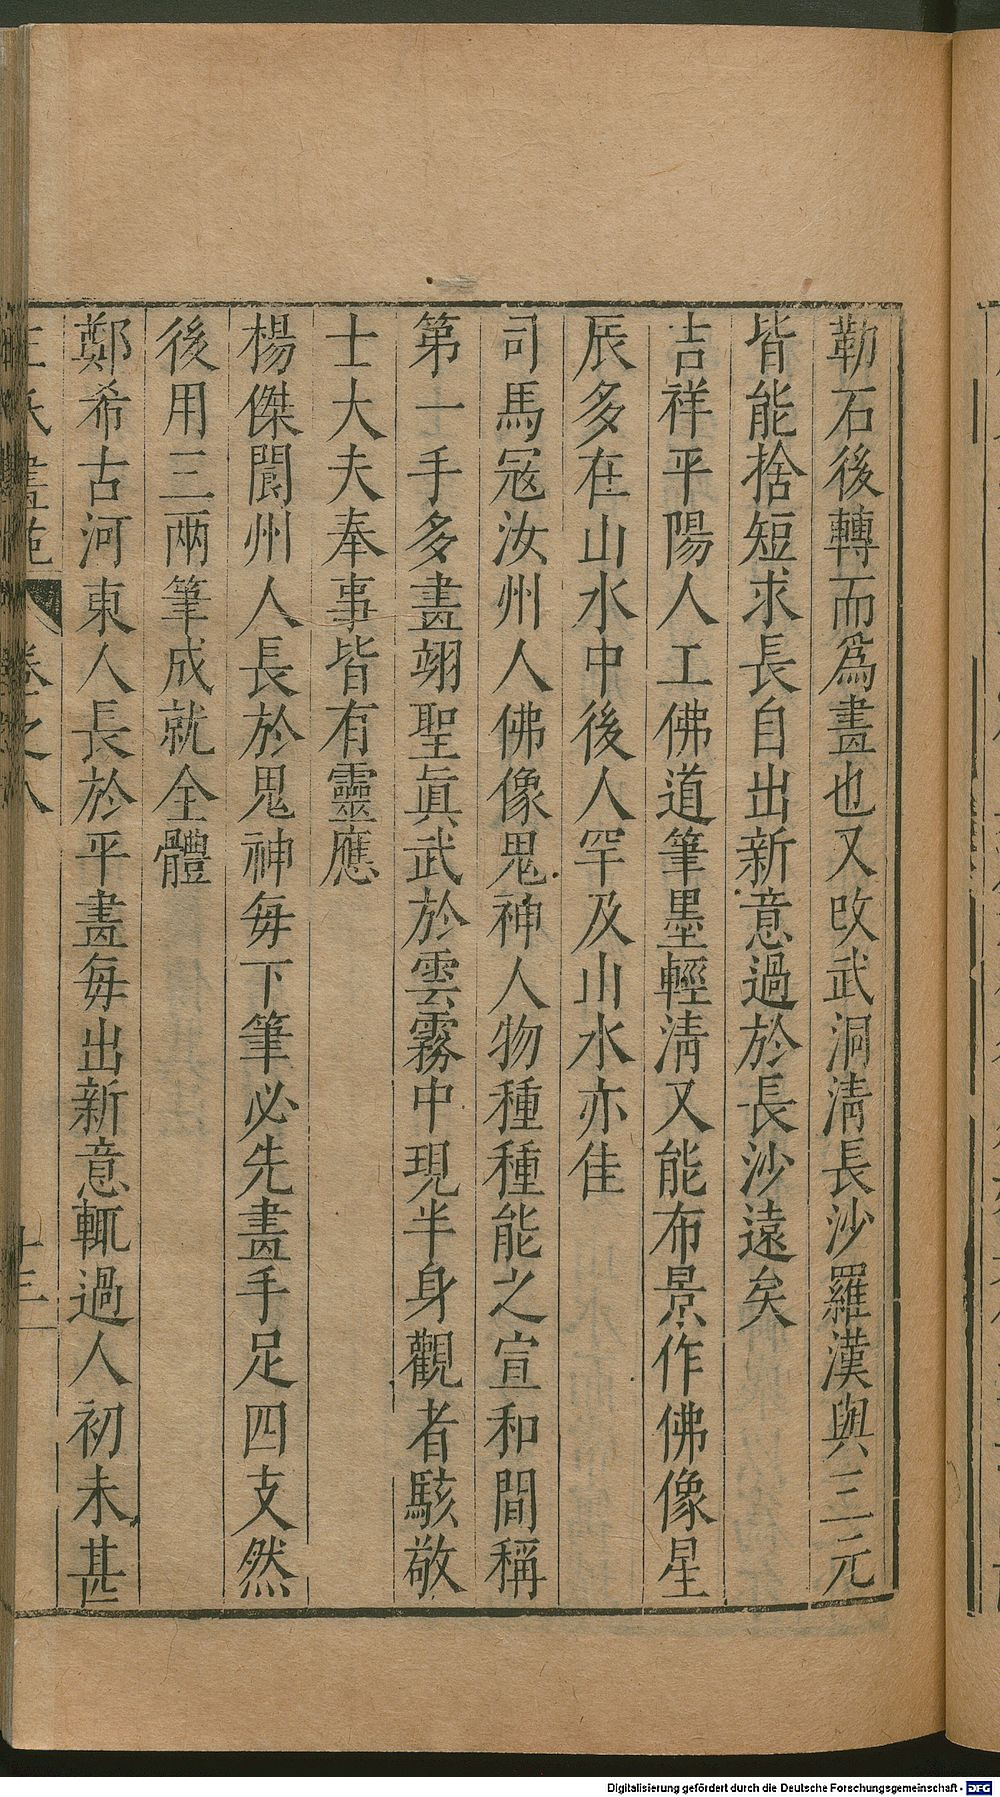 勒石後轉而爲畫也又改武洞淸長沙羅漢與三元
皆能捨短求長自出新意過於長沙遠矣
吉祥平陽人工佛道筆墨輕淸又能布景作佛像星
辰多在山水中後人罕及山水亦佳
司馬寇汝州人佛像鬼神人物種種能之宣和間稱
第一手多畫翊聖眞武於雲霧中現半身觀者駭敬
士大夫奉事皆有靈應
楊傑閬州人長於鬼神每下筆必先畫手足四支然
後用三兩筆成就全體
鄭希古河東人長於平畫每出新意輒過人初未甚
王氏畫苑 卷之八 十三
Digitalisierung gefördert durch die Deutsche Forschungsgemeinschaft - DFG